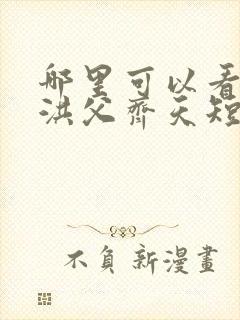 哪里可以看
洪父齐天短
不负新漫畫